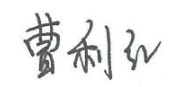 曹利红